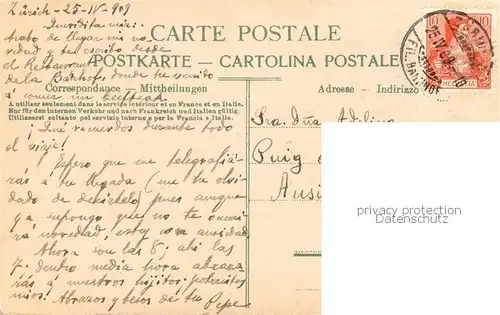 Zürich - 25-IV-909
CARTE POSTALE
POSTKARTE - CARTOLINA POSTALE
Acabo de llegar sin no
vedad y te escribo desde
el Restaurant
de la Bahnhof donde he venido
á comer un beefteak
Correspondance - Mittheilungen
Adresse - Indirizzo
A utiliser seulement dans le service intérieur et en France et en Italie.
Nur für den internen Verkehr und nach Frankreich und Italien gültig.
Utilizzarsi soltanto pel servizio interno e per la Francia e Italia.
¡Qué recuerdos durante todo
el viaje!
Espero que me telegrafia-
rás á tu llegada (me he olvi
dado de decírtelo) pues aunque
ya supongo que no te ocurri
rá novedad, estoy con ansiedad
Ahora son las 8; ahi las
7; dentro media hora abraza-
rás á nuestros hijitos pobrecitos
mios. Abrazos y besos de tu Pepe
Sra. Dña
Puig
10
10
HELVETIA
privacy protection
Veikkos-archiv